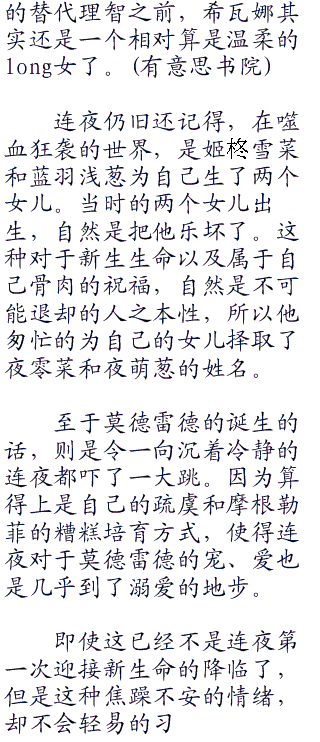 的替代理智之前，希瓦娜其
实还是一个相对算是温柔的
long女了。(有意思书院)
连夜仍旧还记得，在噬
血狂袭的世界，是姬柊雪菜
和蓝羽浅葱为自己生了两个
女儿。当时的两个女儿出
生，自然是把他乐坏了。这
种对于新生生命以及属于自
己骨肉的祝福，自然是不可
能退却的人之本性，所以他
匆忙的为自己的女儿择取了
夜零菜和夜萌葱的姓名。
至于莫德雷德的诞生的
话，则是令一向沉着冷静的
连夜都吓了一大跳。因为算
得上是自己的疏虞和摩根勒
菲的糟糕培育方式，使得连
夜对于莫德雷德的宠、爱也
是几乎到了溺爱的地步。
即使这已经不是连夜第
一次迎接新生命的降临了，
但是这种焦躁不安的情绪，
却不会轻易的习